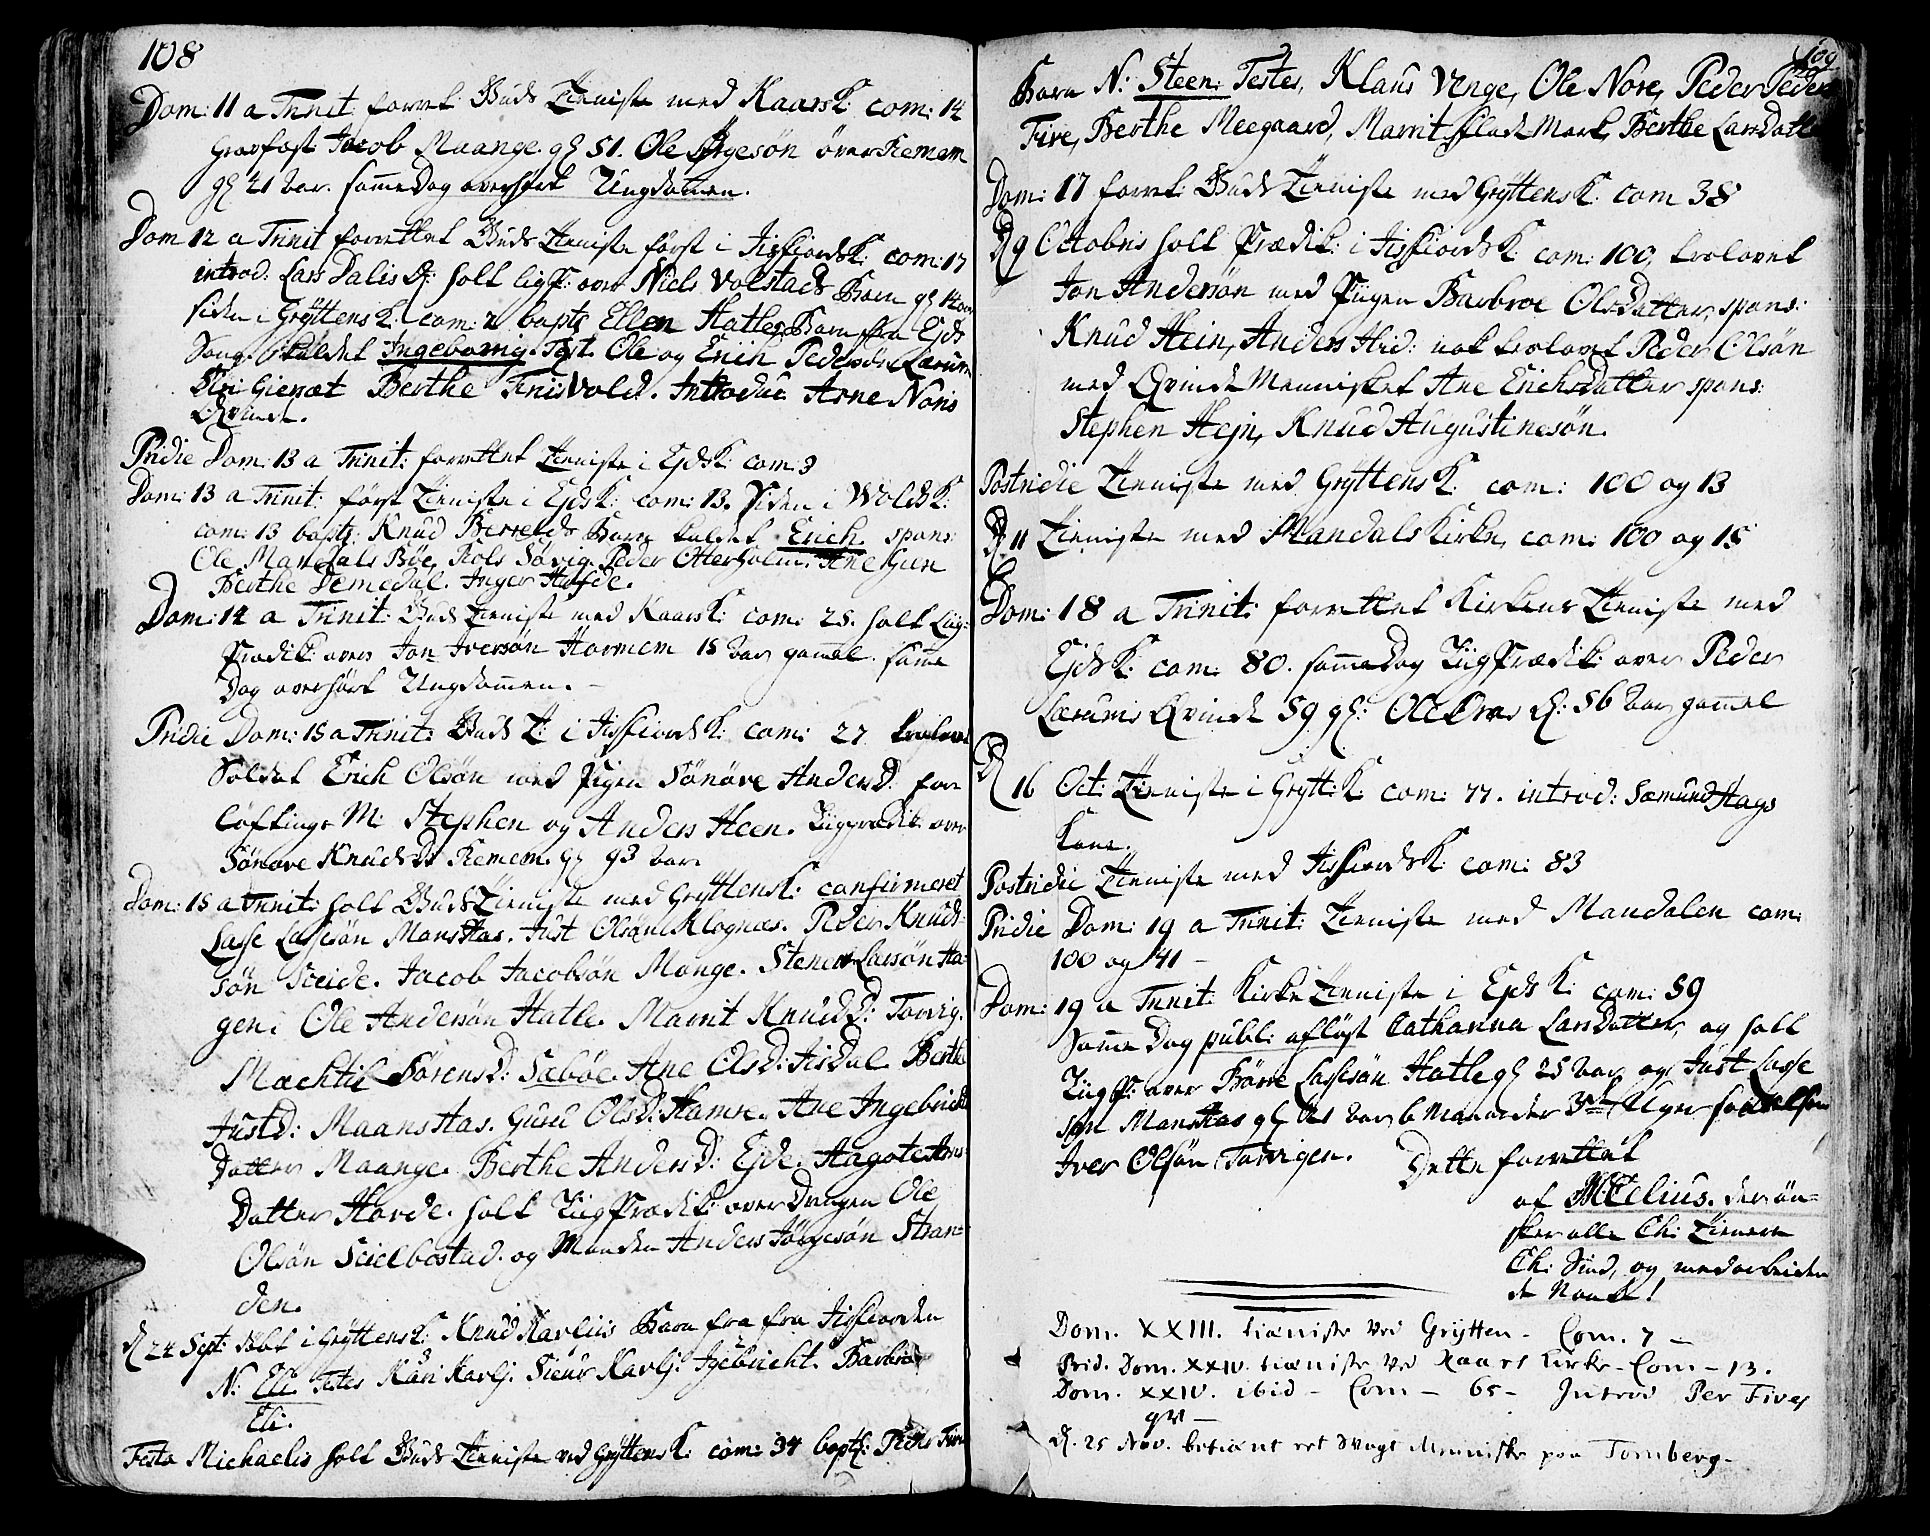 108
Dom: 11 a Trinit: forret Guds Tieniste med Kaars K: com: 14
Gravfæst Jacob Maange. gl 51. Ole Ørgesøn øver Remem
gl 21 aar. samme Dag overhørt Ungdommen.
Dom 12 a Trinit forrettet Guds Tieniste först i Jisfiords K: com: 17
introd: Lars Dalis Q: holt ligP: over Niels Volstads Barn gl
siden i Grÿttens K. com: 2 bapts Ellen Hatles Barn fra Ejds
Sogn kaldet Ingeborrig Test. Ole og Erich Pedersön Lærum
Berthe Finisvold. Introduc Arne Noris
Qvinde.
Pridie Dom: 13 a Trinit: forrettet Tieniste i Ejds K: com: 3
Dom: 13 a Trinit: först Tieniste i Ejds K: com: 13. siden i Wolds K:
com: 13 bapts: Knud Berrelds Barn kaldet Erich. spons:
Ole Mandals Bøe, Rols Søvig. Peder Otterholm. Ane Gun
Berthe Demedal. Inger Hafde.
Dom: 14 a Trinit: Guds Tieniste med Kaars K: com: 25. holt Liig:
Prædik: over Jon Iversøn Hormem 15 aar gamel. samme
Dag overhørt Ungdommen.
Pridie Dom: 15 a Trinit: Guds T: i Jisfiords K: com: 27 troloved
Soldat Erich Olsøn med Pigen Sönöve Anders D: for
Löftings M: Stephen og Anders Heen. Liigprædik over
Sönove Knuds D: Remem. gl 93 aar.
Dom: 15 a Trinit: holt Guds Tieniste med Grÿttens K: confirmeret
Lasse Lassesön Mansstas. Just Olsön Klognæs. Peder Knud-
søn Sceide. Jacob Jacobsön Mange. Stener Larsøn Ha-
gen: Ole Andersön Hatle. Marrit Knuds D: Torvig.
Mæchtil Sörens D: Sæböe. Ane Ols D: Jisdal. Berthe
Justd: Maansstas. Guru Ols D: Hamre. Ane Ingebricht
Datter Maange. Berthe Anders D: Ejde. Aagote Arns
Datter Horde. holt LiigPrædik: over Drengen Ole
Olsön Scielbostad. og Manden Anders Jörgesön Stran-
den.
d 24 Sept: döbt i Grÿttens K: Knud Kavliis Barn fra fra Jisfiorden
N: Eli Testes Kari Kavlj. Siur Kavlj. Igebricht. Barbro
Eli.
Festo Michaelis holt Guds Tieniste ved Grÿttens K: com: 34 bapts: Peders Fiva
109
Barn N: Steen: Testes, Klaus Unge, Ole Nore, Peder Peders
Five, Berthe Meegaard, Marrit Flademark, Berthe Larsdatter
Dom: 17 forret: Guds Tieniste med Grÿttens K: com 38
D 9 Octobris holt Prædik: i Jisfiords K: com: 100, trolovet
Jon Andersön med Piigen Barbroe Olsdatter, spons:
Knud Hein, Anders Hid: nok trolovet Peder Olsön
med Qvinde Mennisket Ane Erichsdatter spons:
Stephen Hejn, Knud Augustinesøn.
Postridie Tieniste med Grÿttens K: com: 100 og 13
D 11 Tieniste med Mandals Kirke, com: 100 og 15
Dom: 18 a Trinit: forrettet Kirkens Tieniste med
Ejds K: com: 80. samme Dag LiigPrædik: over Peder
Lærums Qvinde 59 gl: Ole Q: 56 aar gammel
D 16 Oct: Tieniste i Grÿtt: K: com: 77. introd: Sæmund Hags
Kone.
Postridie Tieniste med Jisfiords K: com: 83
Pridie Dom: 19 a Trinit: Tieniste med Mandalen com:
100 og 41 –
Dom: 19 a Trinit: Kirke Tieniste i Ejds K: com: 59
Samme Dag publ: afløst Catharina Larsdatter, og holt
Liig P: over Börre Lassesön Hatle gl 25 aar og Just Lasse
søn Mansstas gl aar 6 Maaneder 3 Uger
Iver Olsön Torvigen. Dette forrettet
af M: Celius. der øn-
sker alle Ch: Tienere
Ch: Sind, og medarbeiden
de Naade!
Dom. XXIII. tieniste ved Grytten – Com. 7 –
Prid. Dom. XXIV. tieniste ved Kaars Kirke – Com – 13.
Dom. XXIV. ibid – Com – 65 – Introd Per Fives
qv –
d. 25 Nov. betient et svagt Menniske paa Tornberg –